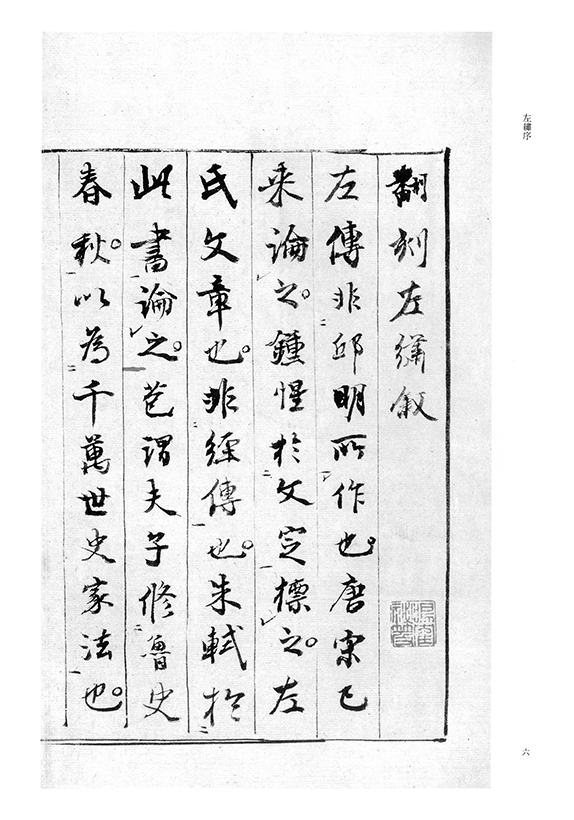 翻刻左繡敘
左傳非邱明所作也唐宋已
来論之鍾惺於文定標之左
氏文章也非經傳也朱軾於
此書論之芭謂夫子修魯史
春秋以為千萬世史家法也
左繡序
六